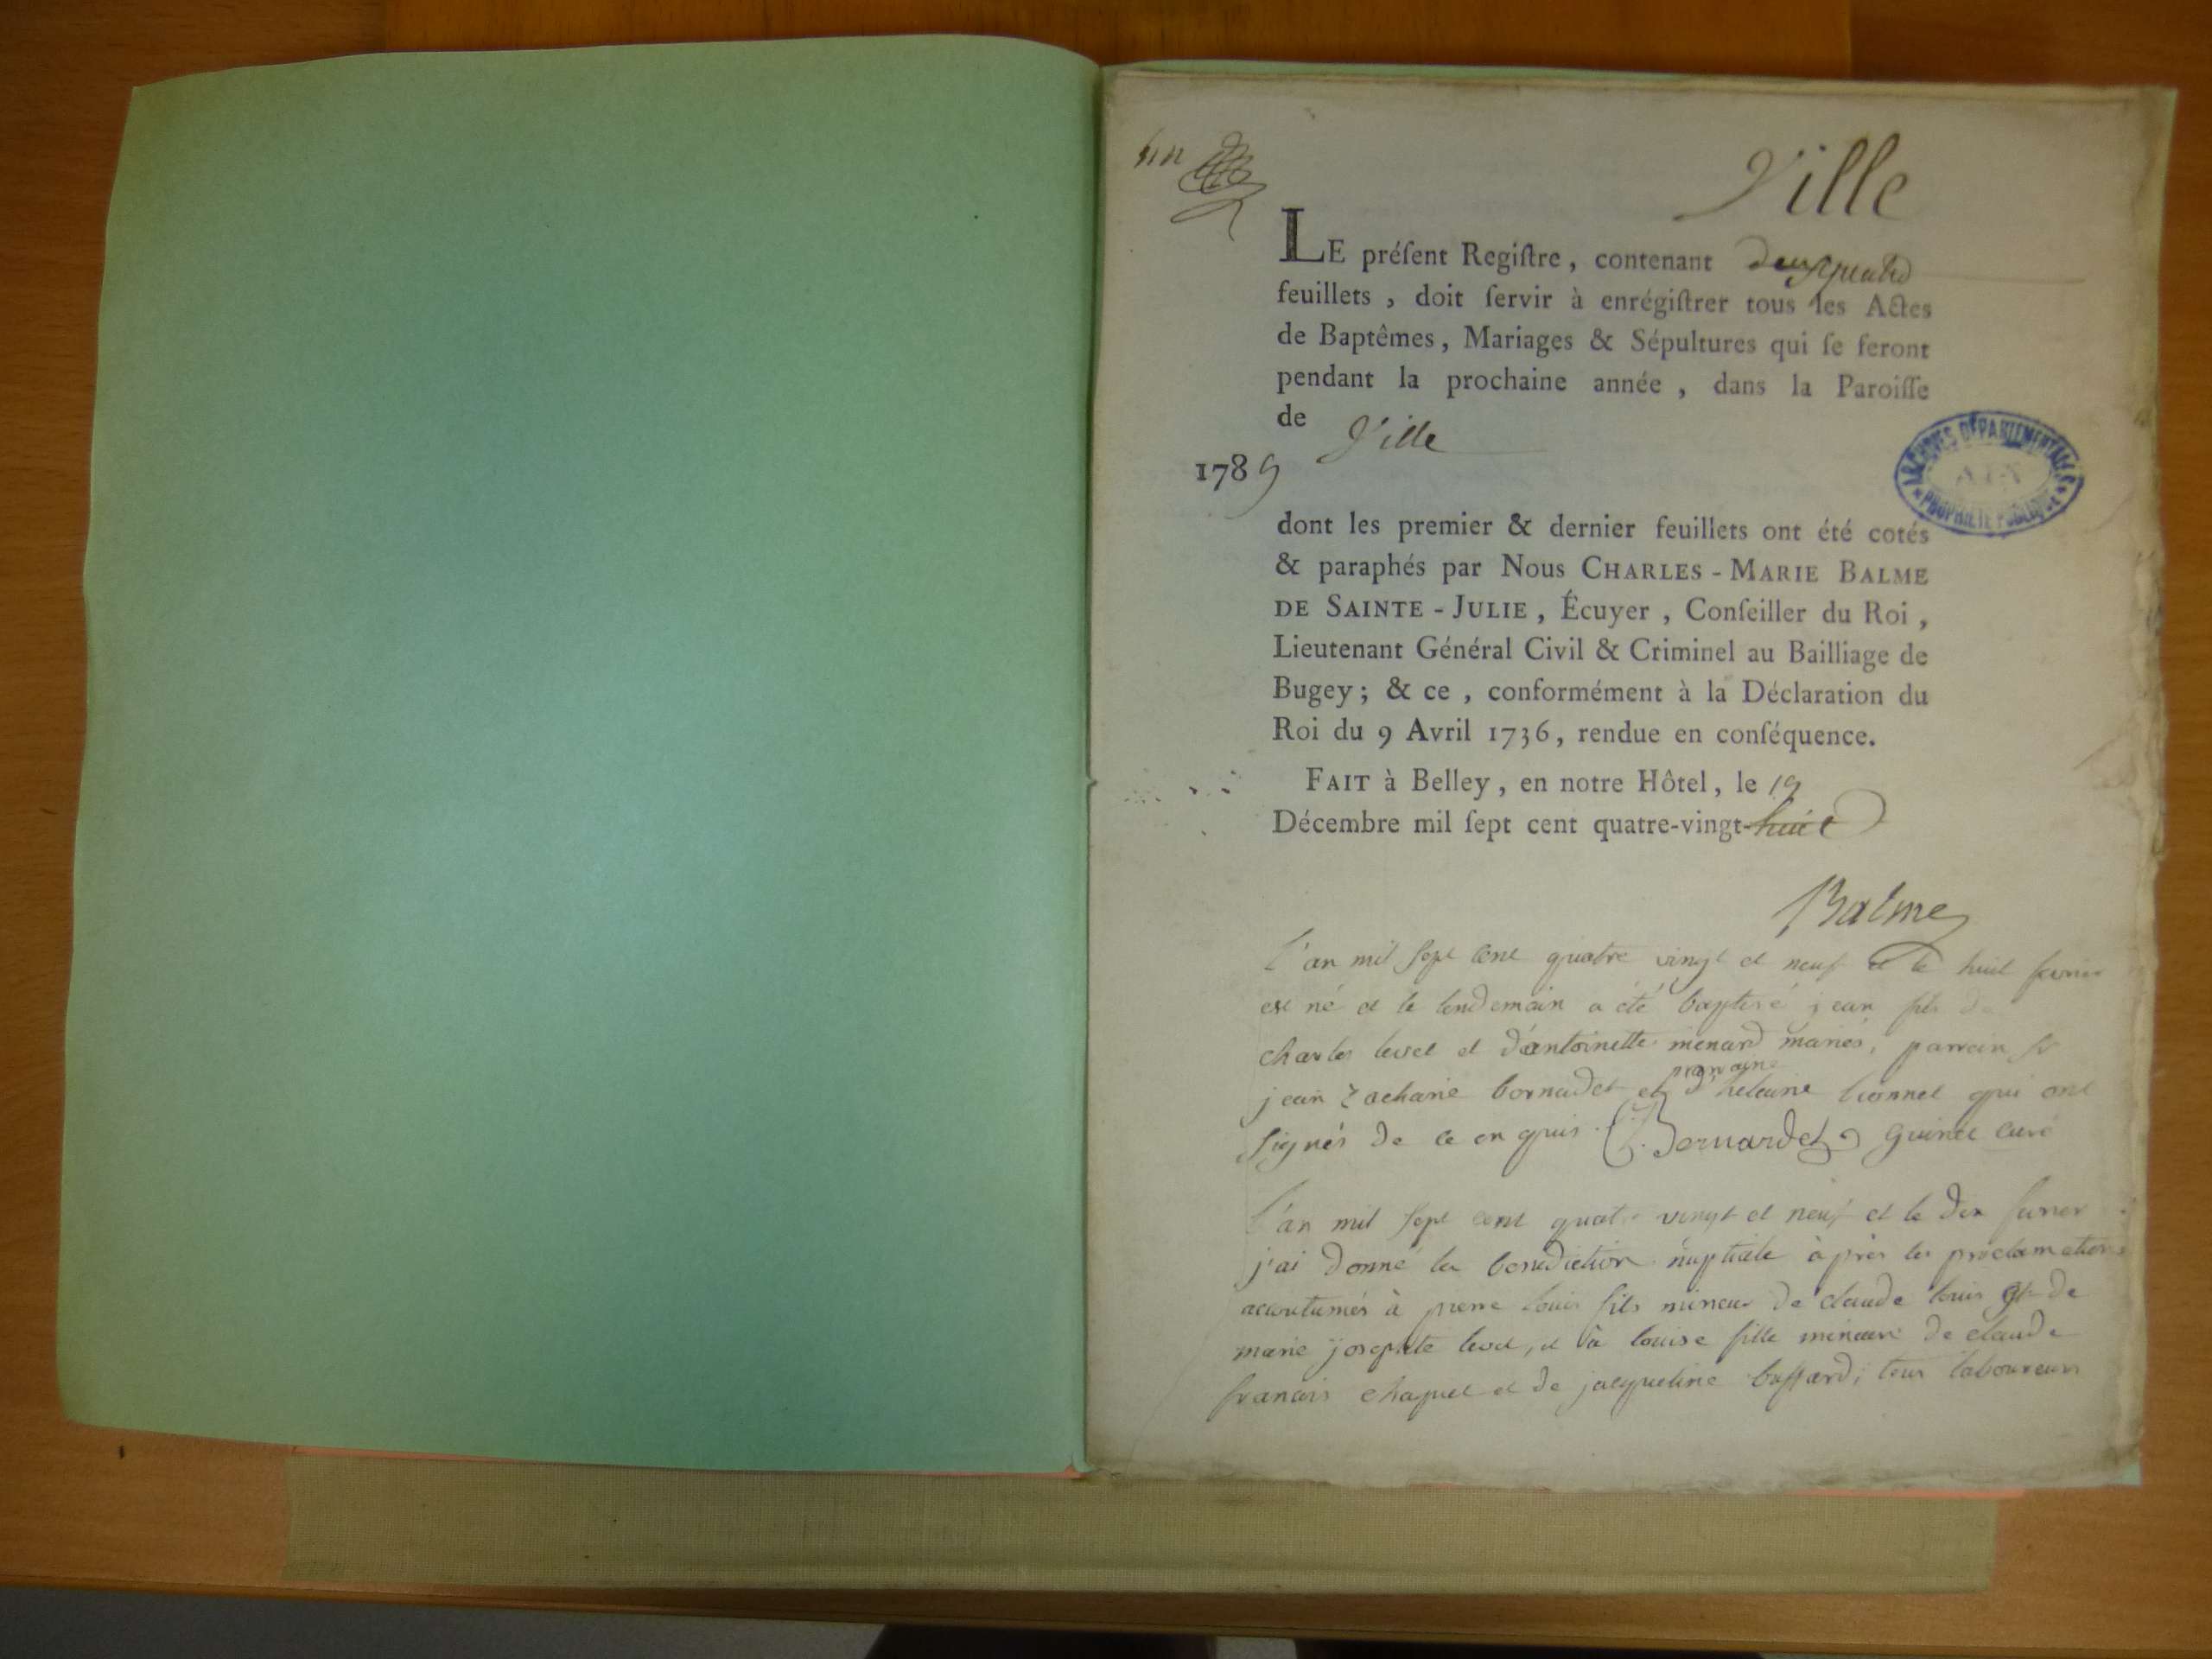 un
Ville
LE préſent Regiſtre, contenant
feuillets, doit ſervir à enrégiſtrer tous les Actes
de Baptêmes, Mariages & Sépultures qui ſe feront
pendant la prochaine année, dans la Paroiſſe
de Ville
1789
ARCHIVES DÉPARTEMENTALES
AIN
PROPRIÉTÉ PUBLIQUE
dont les premier & dernier feuillets ont été cotés
& paraphés par Nous CHARLES-MARIE BALME
DE SAINTE-JULIE, Écuyer, Conſeiller du Roi,
Lieutenant Général Civil & Criminel au Bailliage de
Bugey; & ce, conformément à la Déclaration du
Roi du 9 Avril 1736, rendue en conſéquence.
FAIT à Belley, en notre Hôtel, le 19
Décembre mil ſept cent quatre-vingt-huit
Balme
l'an mil sept cent quatre vingt et neuf et le huit fevrier
est né et le lendemain a été baptisé jean fils de
charles levet et d'antoinette menard mariés, parrain sr
jean zacharie bornadet et marraine helaine lionnet qui ont
signés de ce enquis. Bernardet guinet curé
l'an mil sept cent quatre vingt et neuf et le dix fevrier
j'ai donné la benediction nuptiale après les proclamations
acoutumés à pierre louis fils mineur de claude louis et de
marie josephte levet, et à louise fille mineure de claude
francois chapuet et de jacqueline buffard; tous laboureurs